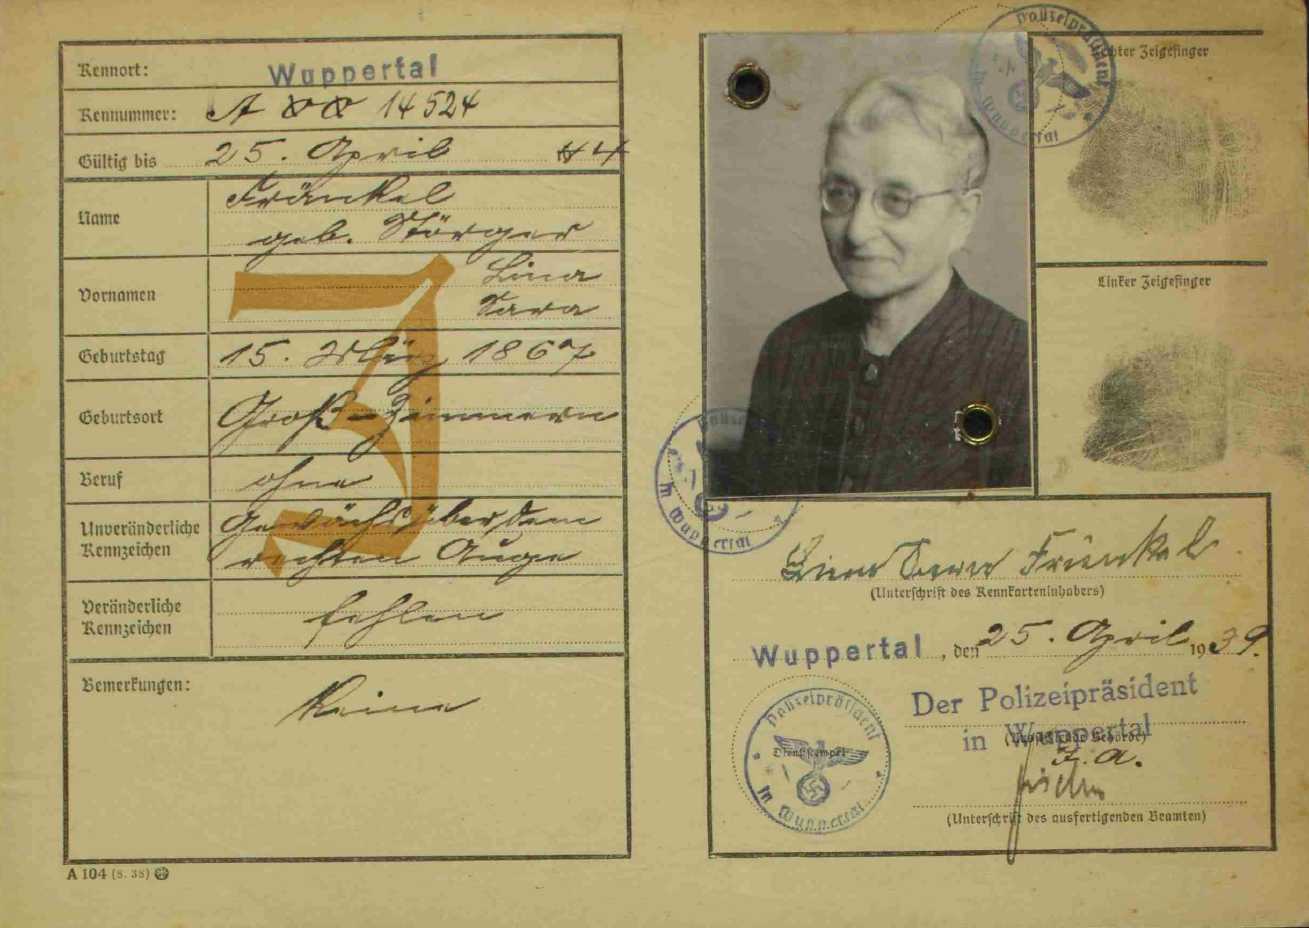 Kennort: Wuppertal
Kennummer: A 14524
Gültig bis 25. April 44
Name Fränkel
geb. Störger
Vornamen Lina
Sara
Geburtstag 15. März 1867
Geburtsort Groß-Zimmern
Beruf ohne
Unveränderliche Kennzeichen Gewächs über dem
rechten Auge
Veränderliche Kennzeichen fehlen
Bemerkungen: Keine
A 104 (8. 38)
J
Polizeipräsident
in Wuppertal
Rechter Zeigefinger
Linker Zeigefinger
Polizei
in Wuppertal
Lina Sara Fränkel
(Unterschrift des Kennkarteninhabers)
Wuppertal, den 25. April 1939.
Der Polizeipräsident
in Wuppertal
I. A.
(Unterschrift des ausfertigenden Beamten)
Polizeipräsident
Dienststempel
in Wuppertal